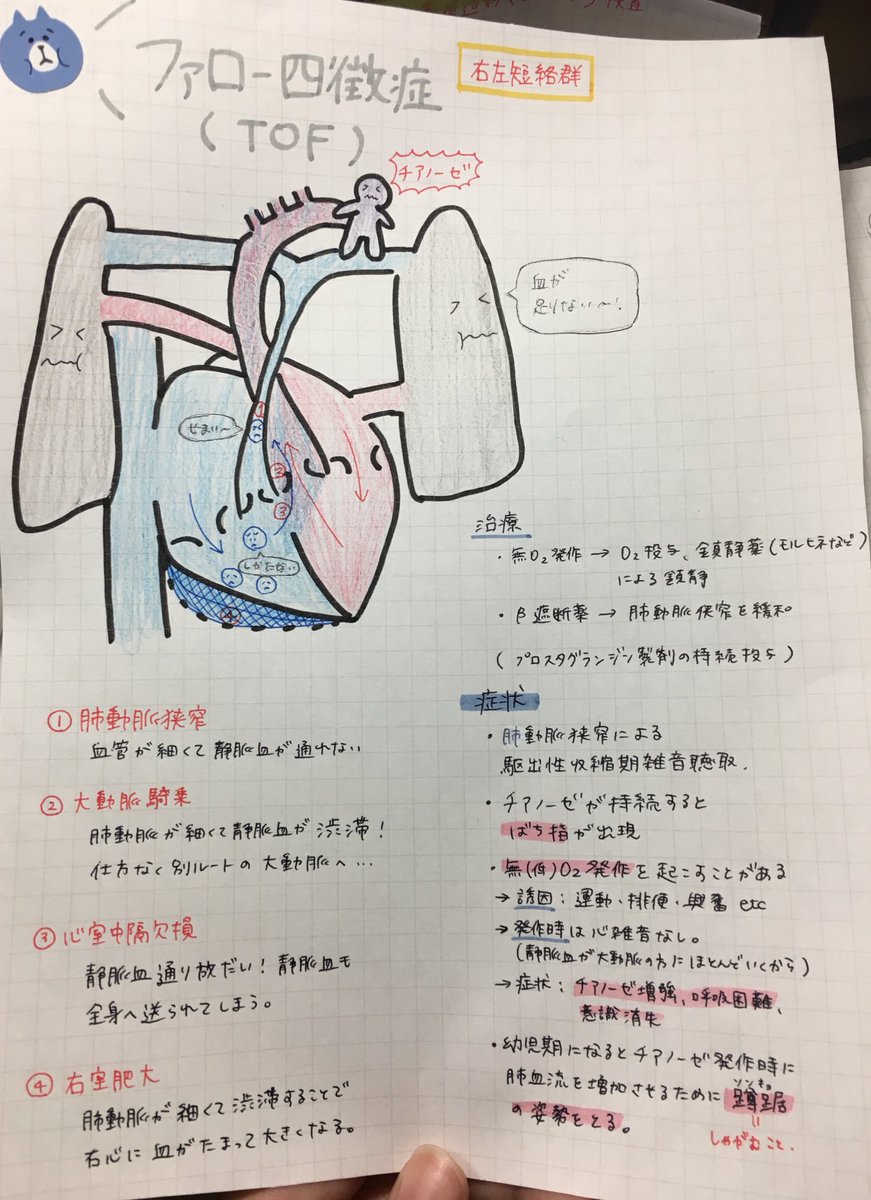 ファロー四徴症
(TOF)
右左短絡群
チアノーゼ
血が
足りない〜!
せまい〜
①
③
③
しかたない
治療
・無O₂発作 → O₂投与、鎮静薬(モルヒネなど)
による鎮静
・β遮断薬 → 肺動脈狭窄を緩和
(プロスタグランジン製剤の持続投与)
① 肺動脈狭窄
血管が細くて静脈血が通れない
② 大動脈騎乗
肺動脈が細くて静脈血が渋滞!
仕方なく別ルートの大動脈へ…
③ 心室中隔欠損
静脈血通り放だい!静脈血も
全身へ送られてしまう。
④ 右室肥大
肺動脈が細くて渋滞することで
右心に血がたまって大きくなる。
症状
・肺動脈狭窄による
駆出性収縮期雑音聴取.
・チアノーゼが持続すると
ばち指が出現
・無(低)O₂発作を起こすことがある
→誘因:運動、排便、興奮 etc
→発作時は心雑音なし。
(静脈血が大動脈の方にほとんどいくから)
→症状:チアノーゼ増強、呼吸困難、
意識消失
・幼児期になるとチアノーゼ発作時に
肺血流を増加させるために蹲踞
ソンキョ
の姿勢をとる。
=
しゃがむこと.